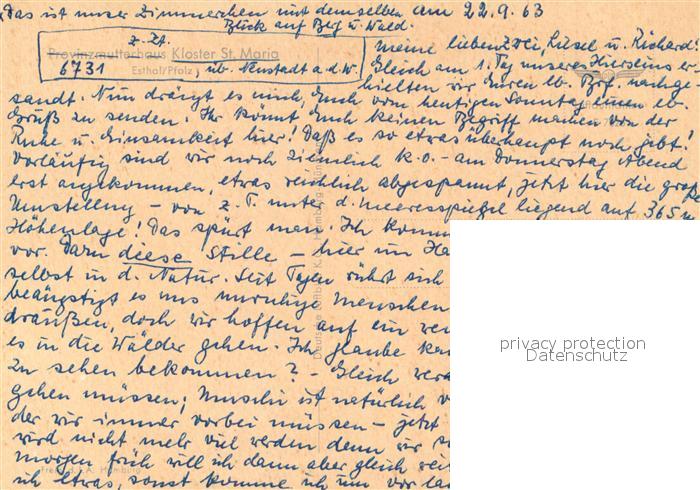 Das ist unser Zimmerchen mit demselben am 22.9.63
Blick auf Berg u. Wald.
z. Zt.
Provinzmutterhaus Kloster St. Maria
Esthal/Pfalz
6731, üb. Neustadt a. d. W.
Meine lieben Zwei, Liesel u. Richard!
Gleich am 1. Tag unseres Hierseins er-
hielten wir Euren lb. Brf. nachge-
sandt. Nun drängt es mich, Euch vom heutigen Sonntag einen lb.
Gruß zu senden. Ihr könnt Euch keinen Begriff machen von der
Ruhe u. Einsamkeit hier! Daß es so etwas überhaupt noch gibt!
Vorläufig sind wir noch ziemlich k.o. - am Donnerstag Abend
erst angekommen, etwas reichlich abgespannt, jetzt hier die große
Umstellung - von z. T. unter d. Meeresspiegel liegend auf 365 m
Höhenlage! Das spürt man. Ich komm
vor. Dazu diese Stille - hier im Ha
selbst in d. Natur. Seit Tagen rührt sich
beängstigt es uns unruhige Menschen
draußen, doch wir hoffen auf ein
es in die Wälder gehen. Ich glaube
zu sehen bekommen? - Gleich
gehen müssen; Muschi ist natürlich
der wir immer vorbei müssen - jetzt
wird nicht mehr viel werden denn wir
morgen früh will ich dann aber gleich
ich etwas, sonst komme ich um vor
privacy protection
Datenschutz